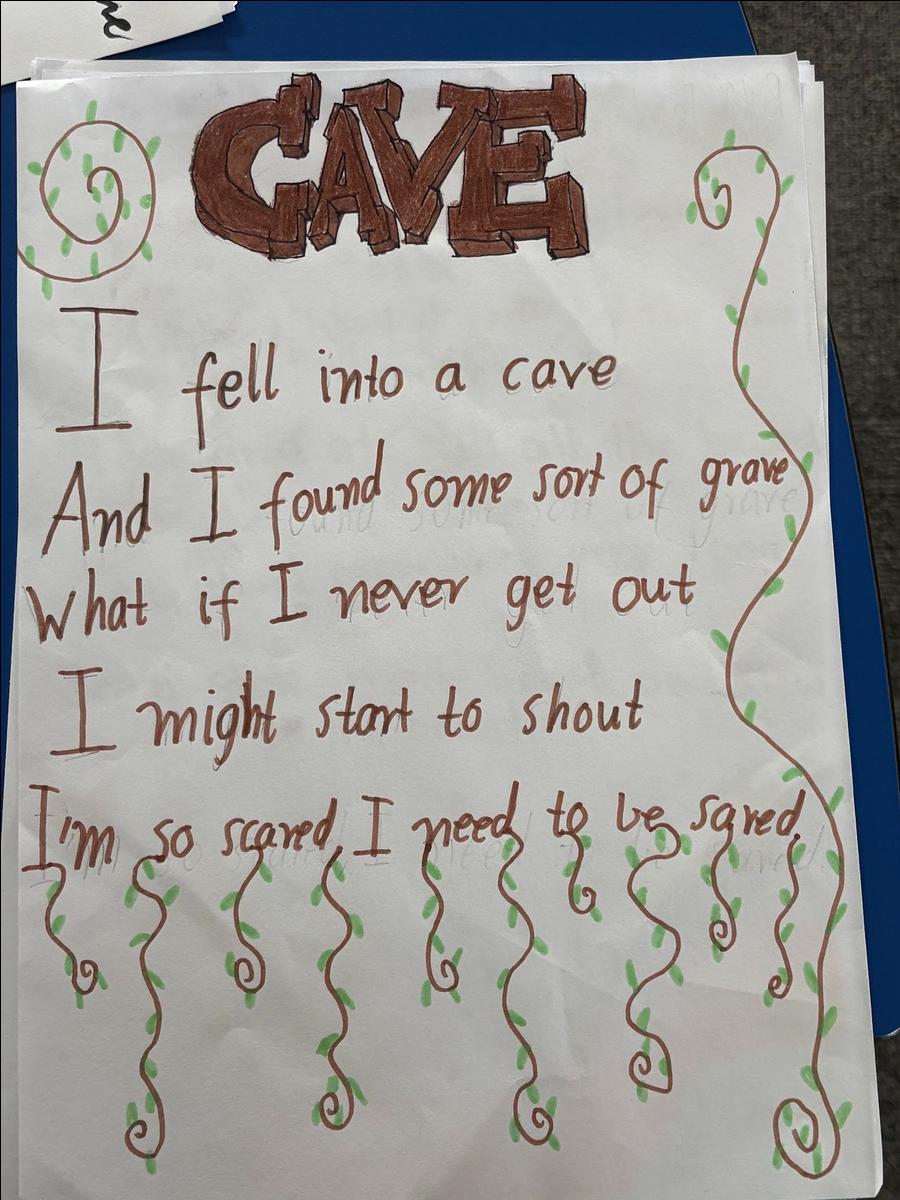 CAVE
I fell into a cave
And I found some sort of grave
What if I never get out
I might start to shout
I'm so scared, I need to be saved.